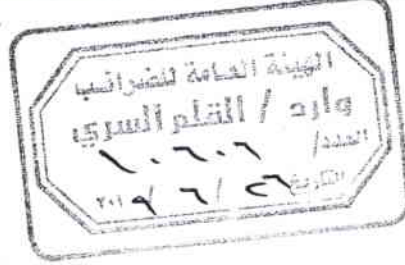 الهيئة العامة للضرائب
وارد / القلم السري
العدد / ١٠٦٠٦
التاريخ ٢٦ / ٦ / ٢٠١٩